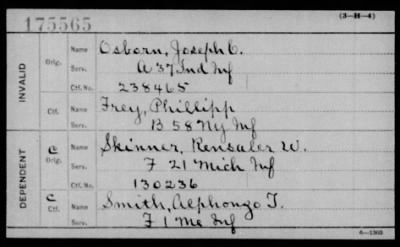 175565 (3-H-4)
INVALID Orig. Name Osborn, Joseph C.
Serv. A 37 Ind Inf
Ctf. No. 238465
Ctf. Name Frey, Phillipp
Serv. B 58 Ny Inf
DEPENDENT C Orig. Name Skinner, Rensaler W.
Serv. F 21 Mich Inf
Ctf. No. 130236
C Ctf. Name Smith, Alphonzo T.
Serv. F 1 Me Inf
6-1303